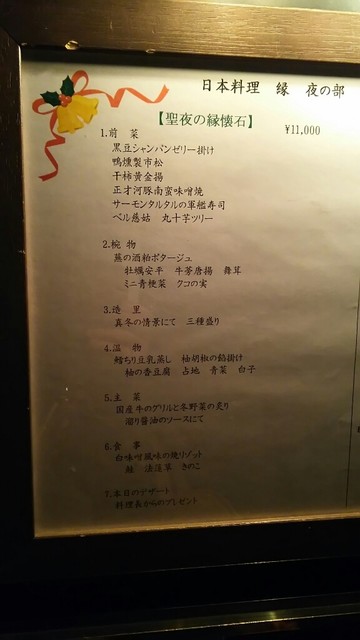 日本料理 縁 夜の部
【聖夜の縁懐石】
¥11,000
1.前 菜
黒豆シャンパンゼリー掛け
鴨燻製市松
干柿黄金揚
正才河豚南蛮味噌焼
サーモンタルタルの軍艦寿司
ベル慈姑 丸十芋ツリー
2.椀 物
蕪の酒粕ポタージュ
牡蠣安平 牛蒡唐揚 舞茸
ミニ青梗菜 クコの実
3.造 里
真冬の情景にて 三種盛り
4.温 物
鱈ちり豆乳蒸し 柚胡椒の餡掛け
柚の香豆腐 占地 青菜 白子
5.主 菜
国産牛のグリルと冬野菜の炙り
溜り醤油のソースにて
6.食 事
白味噌風味の焼リゾット
鮭 法蓮草 きのこ
7.本日のデザート
料理長からのプレゼント